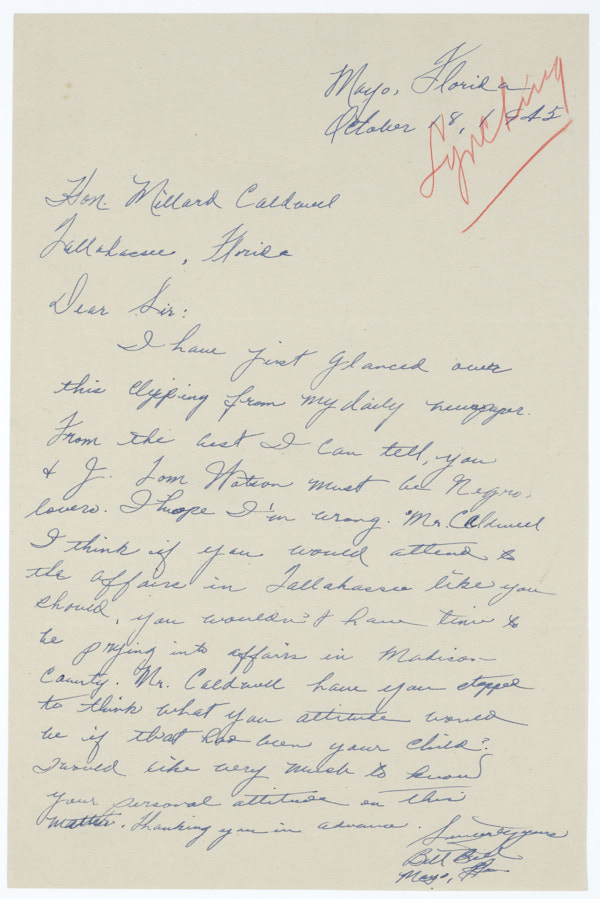 Mayo, Florida
October 18, 1945
Lynching
Hon. Millard Caldwell
Tallahassee, Florida
Dear Sir:
I have just glanced over
this clipping from my daily newspaper.
From the best I can tell, you
& J. Tom Watson must be Negro-
lovers. I hope I'm wrong. Mr. Caldwell
I think if you would attend to
the affairs in Tallahassee like you
should, you wouldn't have time to
be prying into affairs in Madison
County. Mr. Caldwell have you stopped
to think what you attitude would
be if that had been your child?
I would like very much to know
your personal attitude on this
matter. Thanking you in advance.
Sincerely yours
Bill
Mayo, Fla.